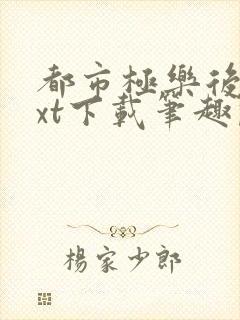 都市極樂後
xt下載筆趣
楊家少郎